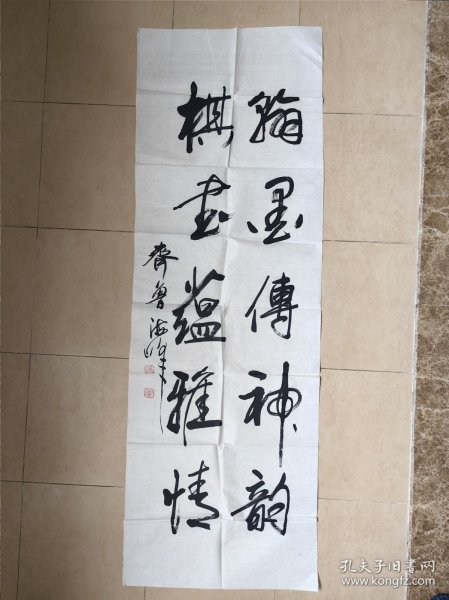 翰墨傳神韵
棋書蕴雅情
齊魯海峰
孔夫子旧书网
www.kongfz.com